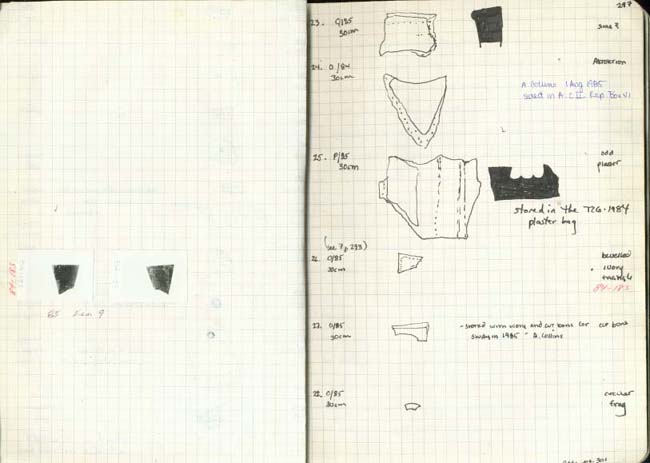 84-183
85
9
287
23. Q/85
30cm
24. O/84
30cm
A. Collins 1 Aug 1985
25. P/85
30cm
odd
plaster
stored in the TZG-1984
plaster bag
(see 7, p 293)
26. O/85
30cm
bevelled
ivory
84-183
27. O/85
30cm
- stored with ivory and cut bone for
cut bone
study in 1985 - A. Collins
28. O/85
30cm
circular
frag